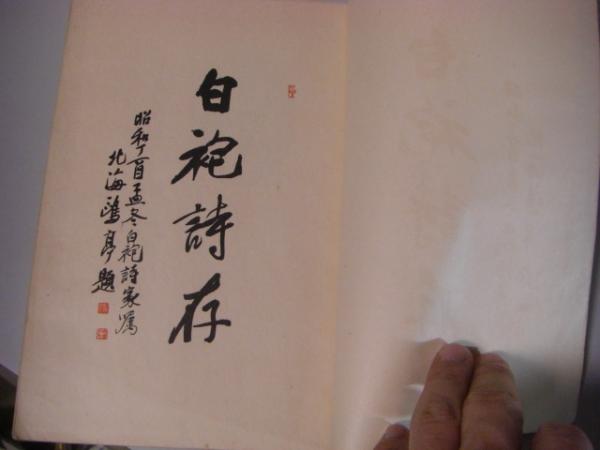 白袍詩存
昭和丁酉孟冬白袍詩家嘱
北海鷗亭題